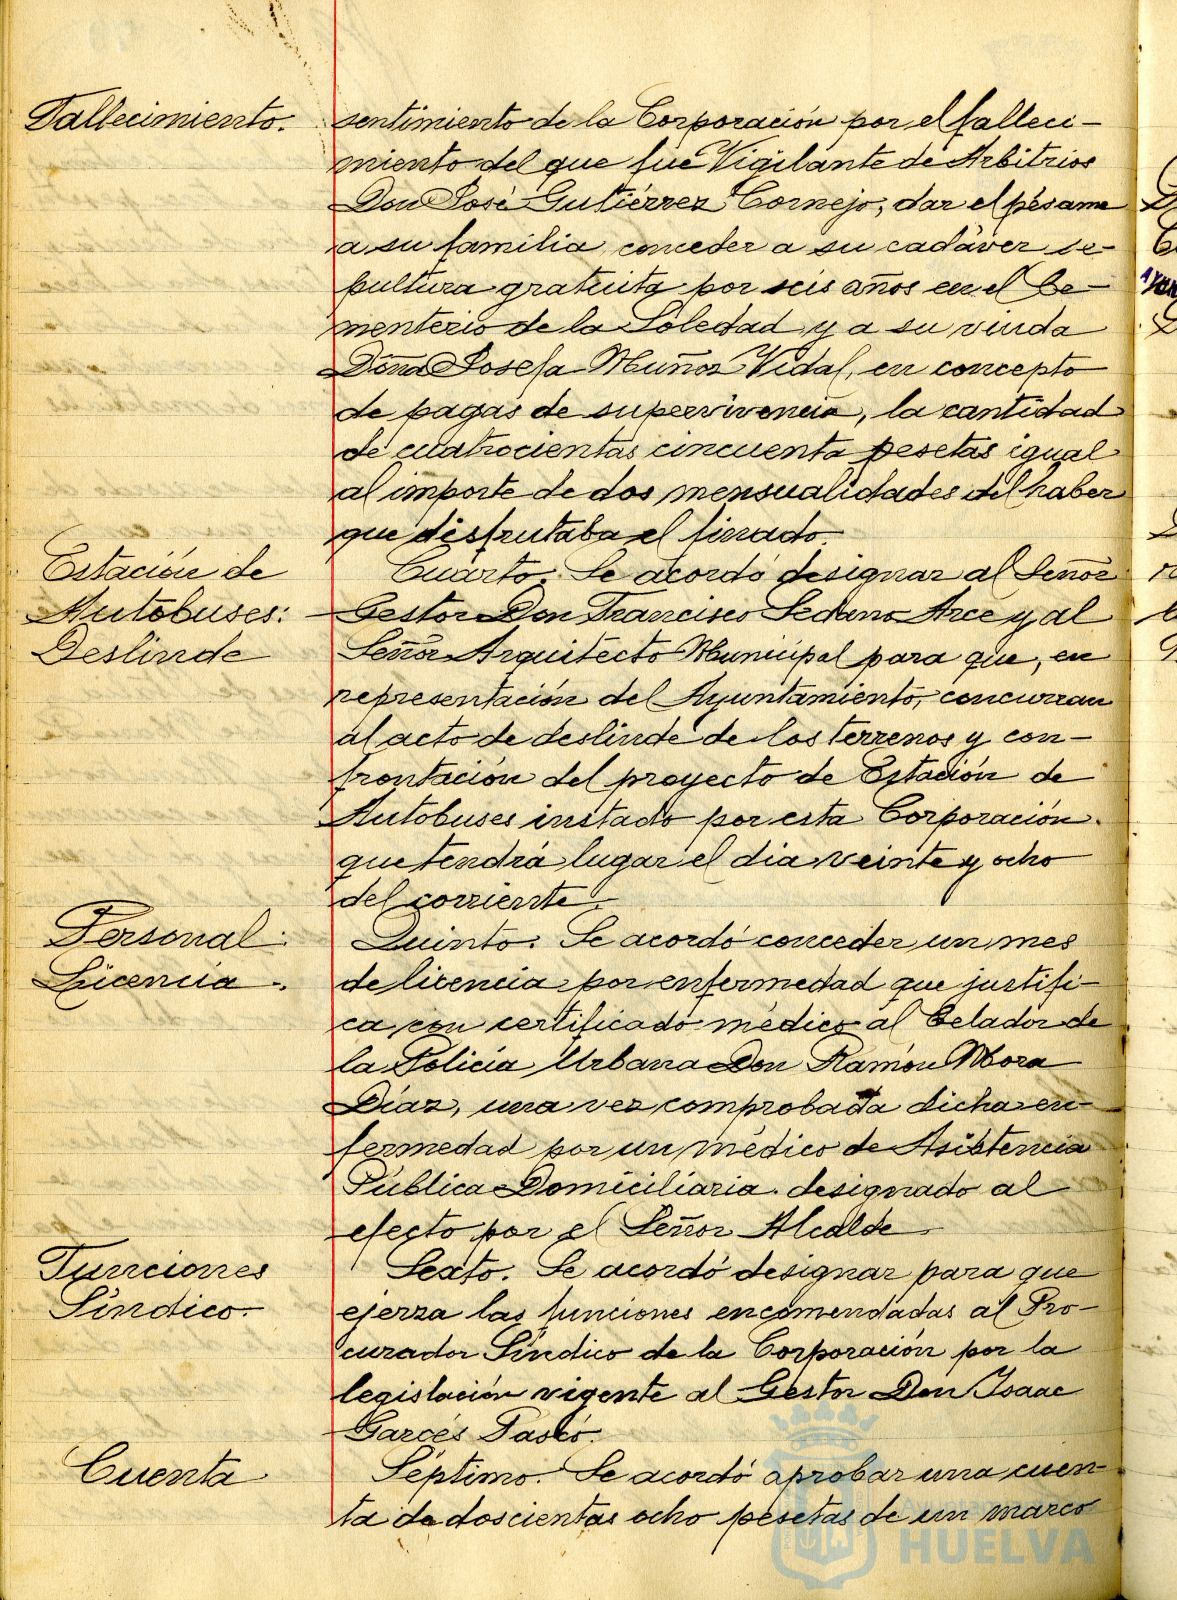 Fallecimiento.
sentimiento de la Corporación por el falleci-
miento del que fue Vigilante de Arbitrios
Don José Gutiérrez Cornejo, dar el pésame
a su familia, conceder a su cadáver se-
pultura gratuita por seis años en el Ce-
menterio de la Soledad y a su viuda
Doña Josefa Muñoz Vidal, en concepto
de pagas de supervivencia, la cantidad
de cuatrocientas cincuenta pesetas igual
al importe de dos mensualidades del haber
que disfrutaba el finado.
Estación de
Autobuses:
Deslinde
Cuarto. Se acordó designar al Señor
Gestor Don Francisco Sedano Arce y al
Señor Arquitecto Municipal para que, en
representación del Ayuntamiento, concurran
al acto de deslinde de los terrenos y con-
frontación del proyecto de Estación de
Autobuses instado por esta Corporación.
que tendrá lugar el dia veinte y ocho
del corriente.
Personal:
Licencia.
Quinto. Se acordó conceder un mes
de licencia por enfermedad que justifi-
ca con certificado médico al Celador de
la Policía Urbana Don Ramón Mora
Díaz, una vez comprobada dicha en-
fermedad por un médico de Asistencia
Pública Domiciliaria designado al
efecto por el Señor Alcalde
Funciones
Síndico.
Sexto. Se acordó designar para que
ejerza las funciones encomendadas al Pro-
curador Síndico de la Corporación por la
legislación vigente al Gestor Don Isaac
Garcés
Cuenta
Séptimo. Se acordó aprobar una cuen-
ta de doscientas ocho pesetas de un marco
HUELVA